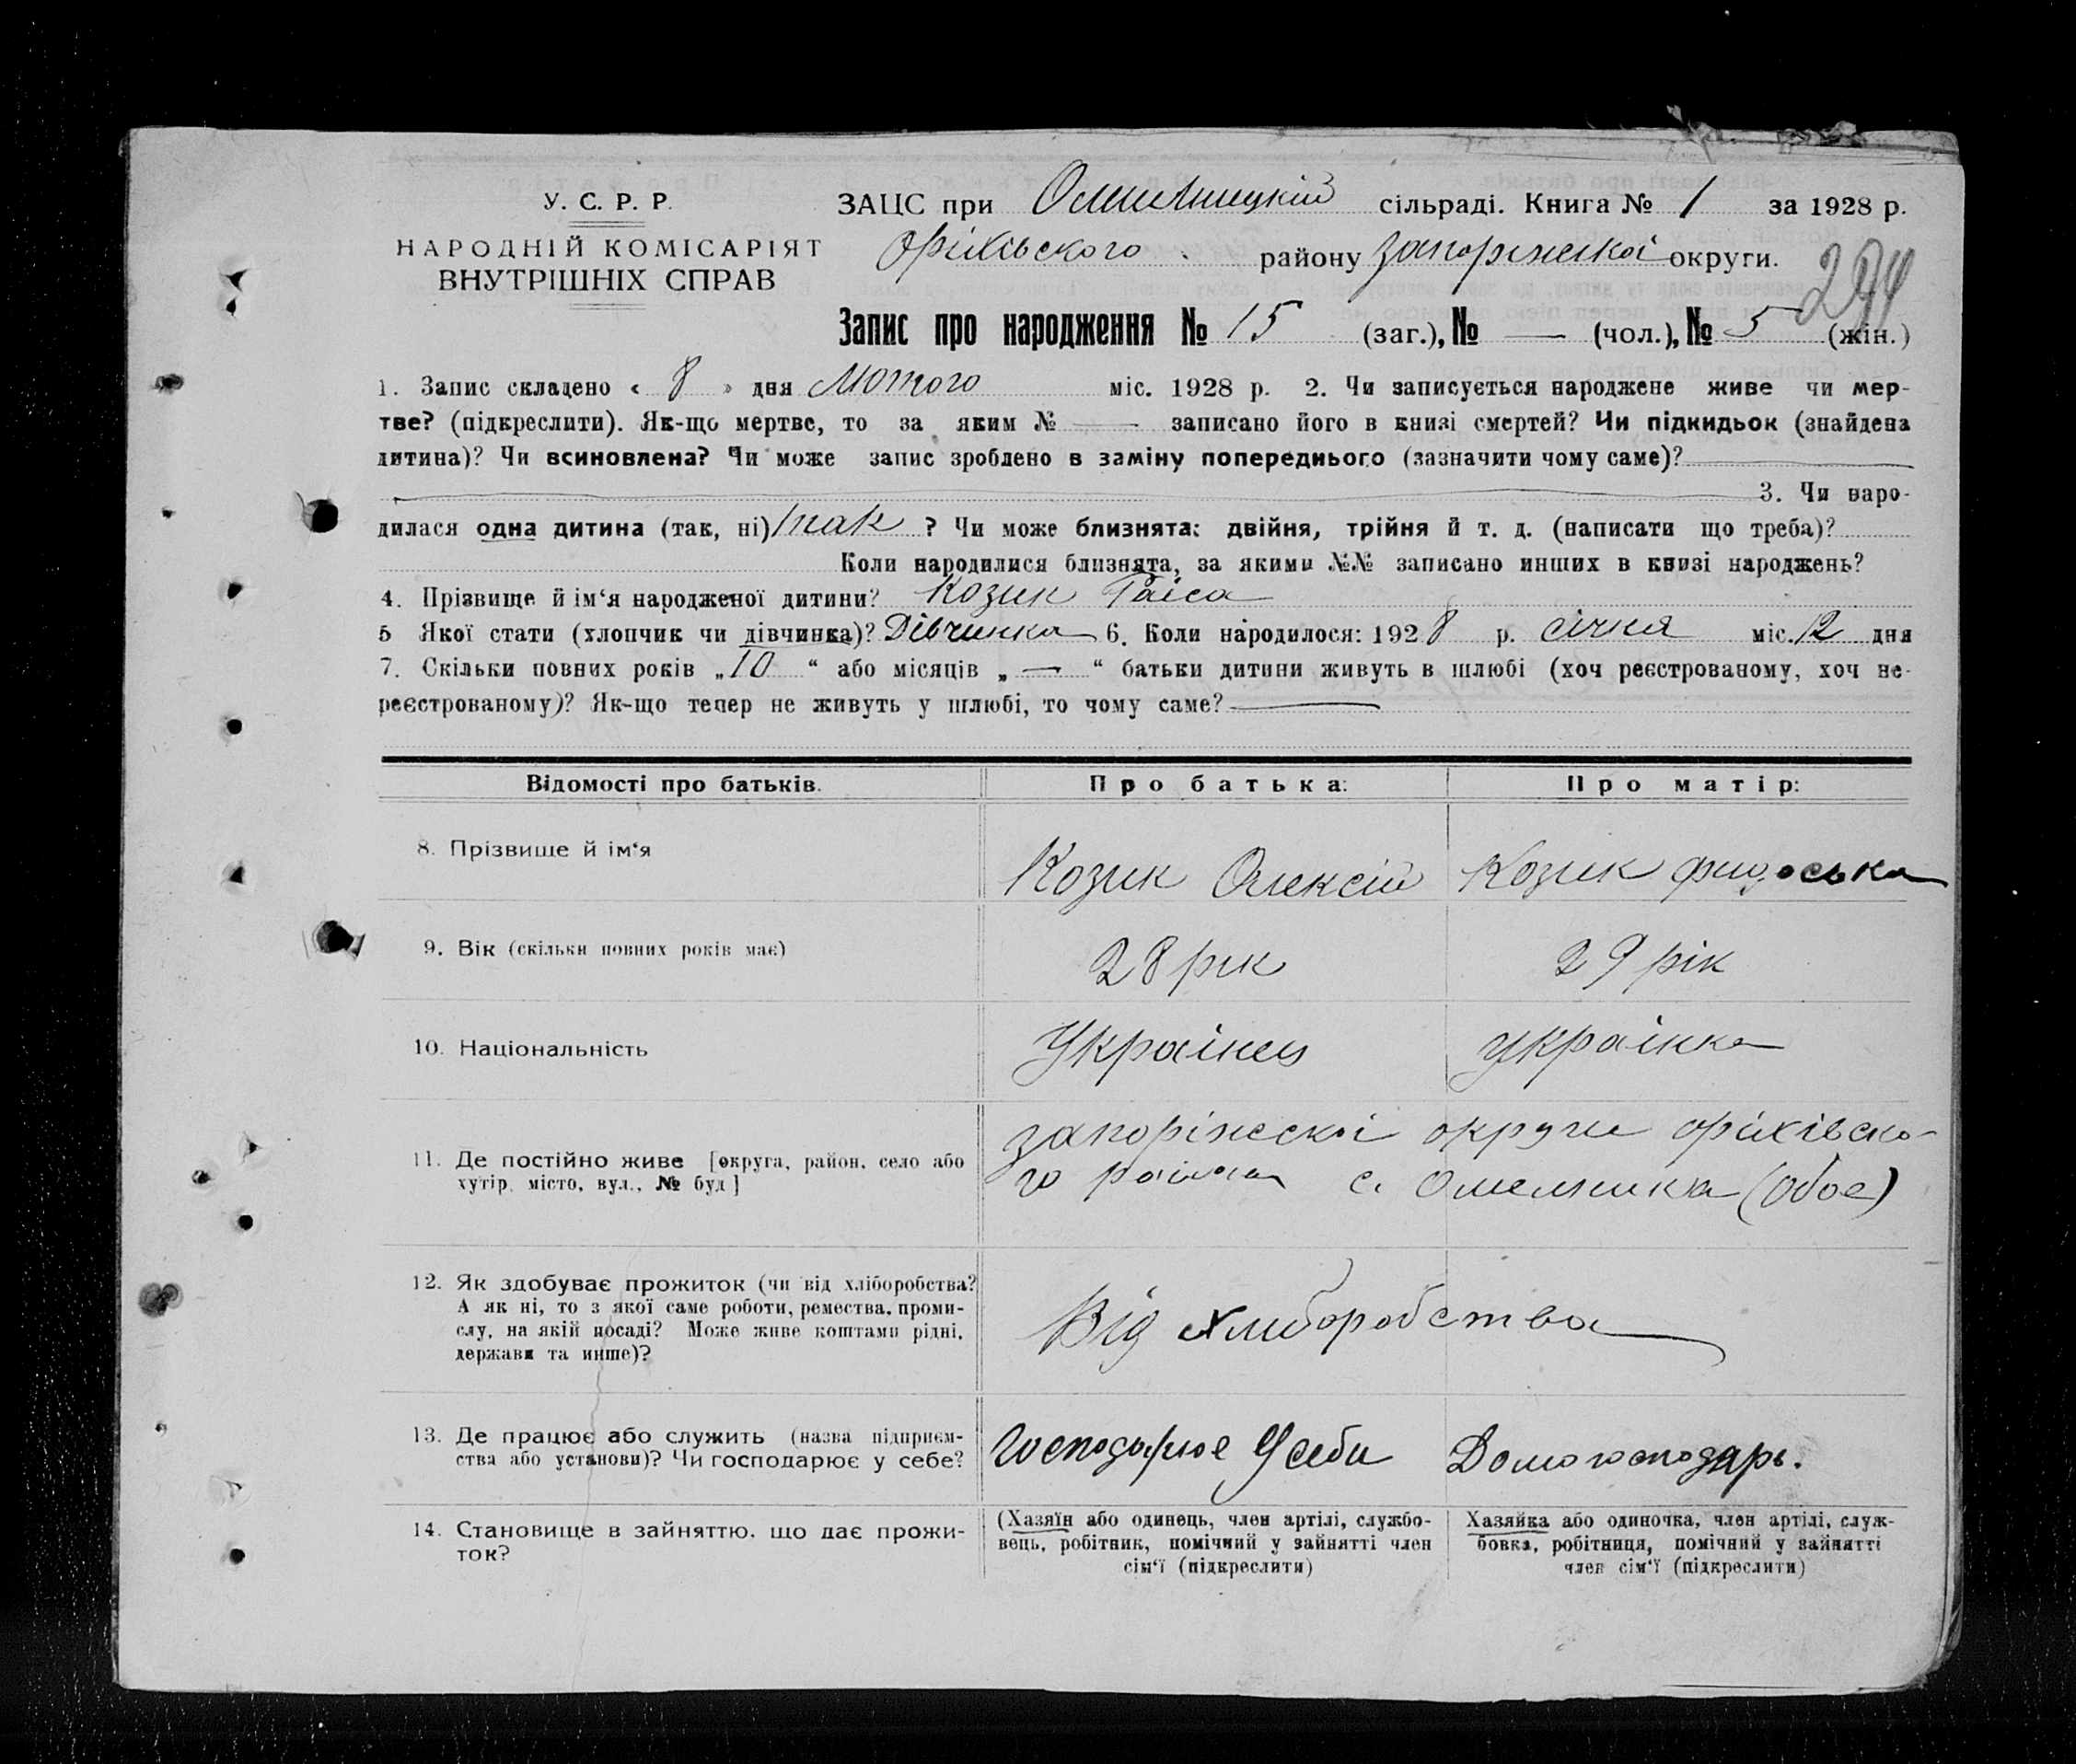 У. С. Р. Р.
НАРОДНІЙ КОМІСАРІЯТ
ВНУТРІШНІХ СПРАВ
ЗАЦС при Омельницкій сільраді. Книга № 1 за 1928 р.
Оріхівського району Запоріжскоі округи.
294
Запис про народження № 15 (заг.), № — (чол.), № 5 (жін.)
1. Запис складено « 8 » дня Лютого міс. 1928 р. 2. Чи записується народжене живе чи мер-
тве? (підкреслити). Як-що мертве, то за яким № — записано його в книзі смертей? Чи підкидьок (знайдена
дитина)? Чи всиновлена? Чи може запис зроблено в заміну попереднього (зазначити чому саме)?
3. Чи наро-
дилася одна дитина (так, ні) так ? Чи може близнята: двійня, трійня й т. д. (написати що треба)?
Коли народилися близнята, за якими №№ записано инших в книзі народжень?
4. Прізвище й ім‘я народженої дитини? Козик Раіса
5 Якої стати (хлопчик чи дівчинка)? Дівчинка 6. Коли народилось: 1928 р. січня міс. 12 дня
7. Скільки повних років „10“ або місяців „—“ батьки дитини живуть в шлюбі (хоч реєстрованому, хоч не-
реєстрованому)? Як-що тепер не живуть у шлюбі, то чому саме? —
Відомості про батьків. Про батька: Про матір:
8. Прізвище й ім‘я Козик Олексій Козик Фидоська
9. Вік (скільки повних років має) 28 рік 29 рік
10. Національність Украінец украінка
11. Де постійно живе [округа, район, село або
хутір, місто, вул., № буд]
запоріжскоі округи оріхівско-
го раіона с. Омельника (обое)
12. Як здобуває прожиток (чи від хліборобства?
А як ні, то з якої саме роботи, ремества, проми-
слу, на якій посаді? Може живе коштами рідні,
держави та инше)?
Від хлиборобства
13. Де працює або служить (назва підприєм-
ства або установи)? Чи господарює у себе?
Господарюе У себи Домогосподарь.
14. Становище в зайняттю, що дає прожи-
ток?
(Хазяїн або одинець, член артілі, службо-
вець, робітник, помічний у зайнятті член
сім‘ї (підкреслити)
Хазяйка або одиночка, член артілі, служ-
бовка, робітниця, помічний у зайнятті
член сім‘ї (підкреслити)